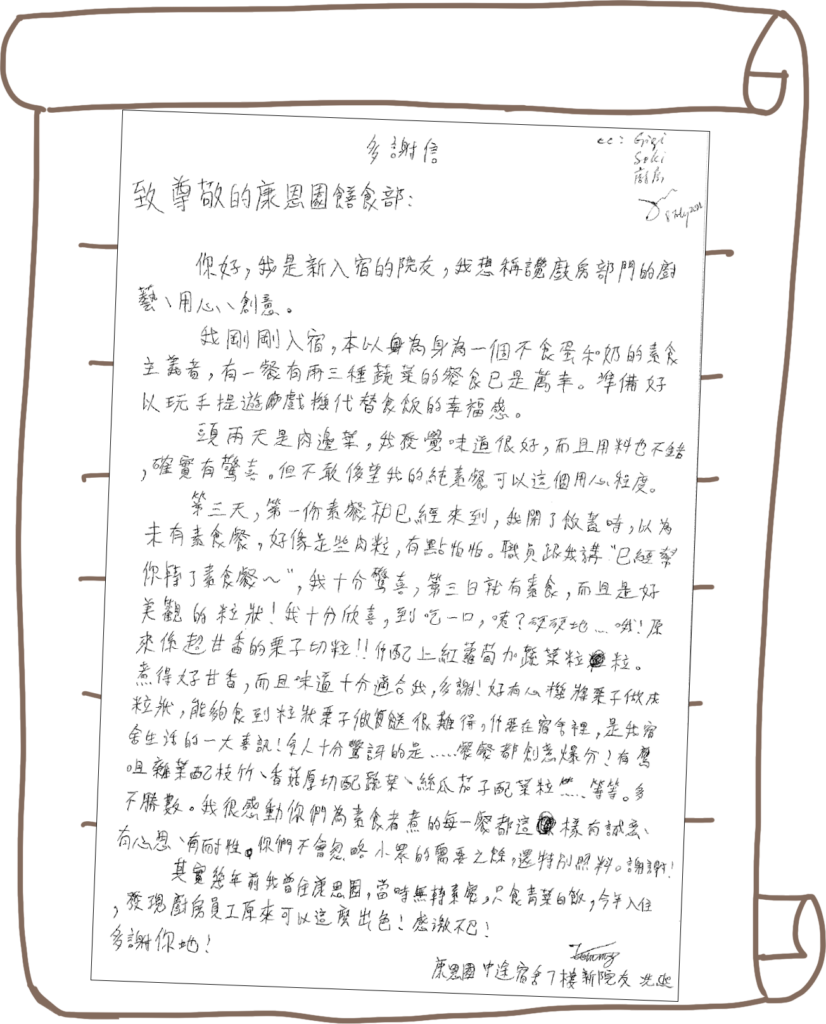 多謝信
cc: Gigi
Seki
廚房
8 July 2021
致尊敬的康恩園饍食部:
你好,我是新入宿的院友,我想稱讚廚房部門的廚
藝、用心、創意。
我剛剛入宿,本以身為身為一個不食蛋和奶的素食
主義者,有一餐有兩三種蔬菜的餐食已是萬幸。準備好
以玩手提遊戲機代替食飯的幸福感。
頭兩天是肉邊菜,我發覺味道很好,而且用料也不錯
,確實有驚喜。但不敢後望我的純素餐可以這個用心粒度。
第三天,第一份素餐就已經來到,我開了飯蓋時,以為
未有素食餐,好像是些肉粒,有點怕怕。職員跟我講“已經幫
你轉了素食餐~”,我十分驚喜,第三日就有素食,而且是好
美觀的粒狀!我十分欣喜,到吃一口,咦?硬硬地....哦!原
來係超甘香的栗子切粒!!什配上紅蘿蔔加蔬菜粒粒。
煮得好甘香,而且味道十分適合我,多謝!好有心機將栗子做成
粒狀,能夠食到粒狀栗子做餸很難得,什要在宿舍裡,是我宿
舍生活的一大喜訊!令人十分驚訝的是.....餐餐都創意爆分!有
咀雜菜配枝竹、香菇厚切配蔬菜、絲瓜茄子配菜粒....等等。多
不勝數。我很感動你們為素食者煮的每一餐都這樣有誠意、
有心思、有耐性。你們不會忽略小眾的需要之餘,還特別照料。謝謝!
其實幾年前我曾住康恩園,當時無轉素餐,只食青菜白飯,今年入住
,發現廚房員工原來可以這麼出色!感激不已!
多謝你地!
Tommy
康恩園中途宿舍7樓新院友